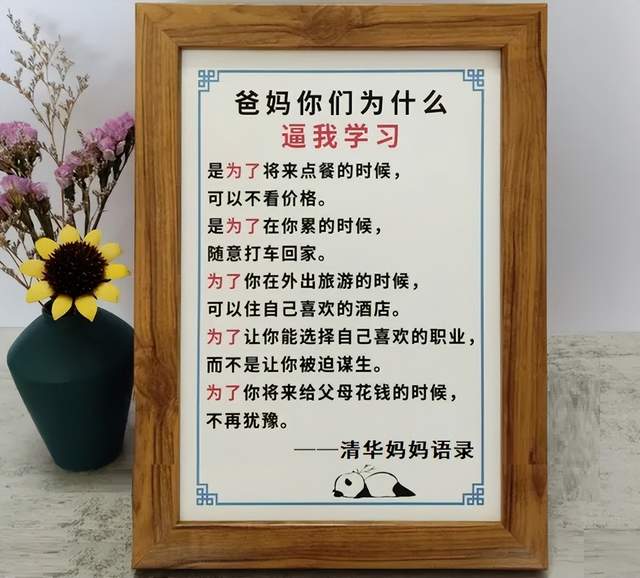 爸妈你们为什么
逼我学习
是为了将来点餐的时候，
可以不看价格。
是为了在你累的时候，
随意打车回家。
为了你在外出旅游的时候，
可以住自己喜欢的酒店。
为了让你能选择自己喜欢的职业，
而不是让你被迫谋生。
为了你将来给父母花钱的时候，
不再犹豫。
——清华妈妈语录